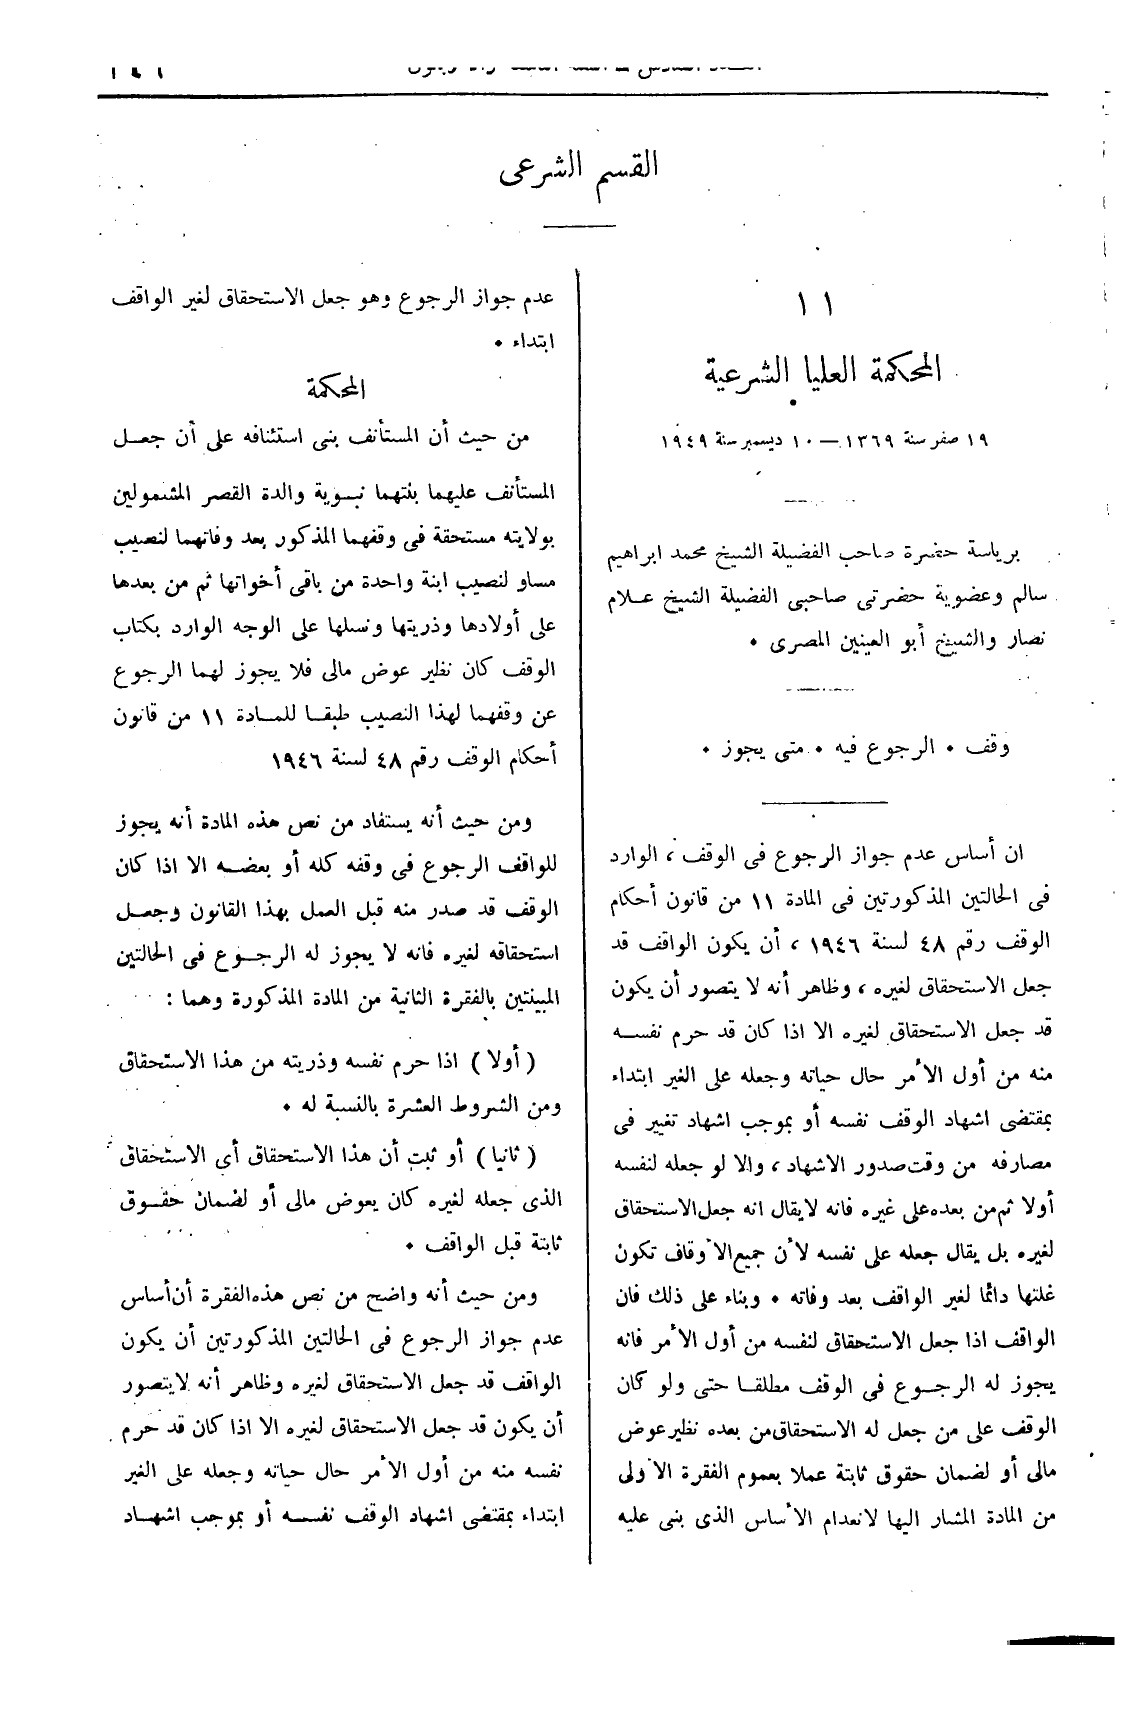 القسم الشرعى
١١
المحكمة العليا الشرعية
١٩ صفر سنة ١٣٦٩ — ١٠ ديسمبر سنة ١٩٤٩
برياسة حضرة صاحب الفضيلة الشيخ محمد ابراهيم
سالم وعضوية حضرتى صاحبى الفضيلة الشيخ عـلام
نصار والشيخ أبو العينين المصرى ٠
وقف ٠ الرجوع فيه ٠ متى يجوز ٠
ان أساس عدم جواز الرجوع فى الوقف ، الوارد
فى الحالتين المذكورتين فى المادة ١١ من قانون أحكام
الوقف رقم ٤٨ لسنة ١٩٤٦ ، أن يكون الواقف قد
جعل الاستحقاق لغيره ، وظاهر أنه لا يتصور أن يكون
قد جعل الاستحقاق لغيره الا اذا كان قد حرم نفسـه
منه من أول الأمر حال حياته وجعله على الغير ابتداء
بمقتضى اشهاد الوقف نفسه أو بموجب اشهاد تغيير فى
مصارفه من وقت صدور الاشهاد ، والا لو جعله لنفسه
أولا ثم من بعده على غيره فانه لايقال انه جعل الاستحقاق
لغيره بل يقال جعله على نفسه لأن جميع الأوقاف تكون
غلتها دائما لغير الواقف بعد وفاته ٠ وبناء على ذلك فان
الواقف اذا جعل الاستحقاق لنفسه من أول الأمر فانه
يجوز له الرجـوع فى الوقف مطلقـا حتى ولو كان
الوقف على من جعل له الاستحقاق من بعده نظير عوض
مالى أو لضمان حقوق ثابتة عملا بعموم الفقرة الأولى
من المادة المشار اليها لانعدام الأساس الذى بنى عليه
عدم جواز الرجوع وهو جعل الاستحقاق لغير الواقف
ابتداء ٠
المحكمة
من حيث أن المستأنف بنى استئنافه على أن جعـل
المستأنف عليهما بنتهما نبـوية والدة القصر المشمولين
بولايته مستحقة فى وقفهما المذكور بعد وفاتهما لنصيب
مساو لنصيب ابنة واحدة من باقى أخواتها ثم من بعدها
على أولادها وذريتها ونسلها على الوجه الوارد بكتاب
الوقف كان نظير عوض مالى فلا يجوز لهما الرجوع
عن وقفهما لهذا النصيب طبقـا للمـادة ١١ من قانون
أحكام الوقف رقم ٤٨ لسنة ١٩٤٦
ومن حيث أنه يستفاد من نص هذه المادة أنه يجوز
للواقف الرجوع فى وقفه كله أو بعضـه الا اذا كان
الوقف قد صدر منه قبل العمل بهذا القانون وجعـل
استحقاقه لغيره فانه لا يجوز له الرجـوع فى الحالتين
المبينتين بالفقرة الثانية من المادة المذكورة وهما :
( أولا ) اذا حرم نفسه وذريته من هذا الاستحقاق
ومن الشروط العشرة بالنسبة له ٠
( ثانيا ) أو ثبت أن هذا الاستحقاق أى الاستحقاق
الذى جعله لغيره كان بعوض مالى أو لضمان حقـوق
ثابتة قبل الواقف ٠
ومن حيث أنه واضح من نص هذه الفقرة أن أساس
عدم جواز الرجوع فى الحالتين المذكورتين أن يكون
الواقف قد جعل الاستحقاق لغيره وظاهر أنه لايتصور
أن يكون قد جعل الاستحقاق لغيره الا اذا كان قد حرم
نفسه منه من أول الأمر حال حياته وجعله على الغير
ابتداء بمقتضى اشهاد الوقف نفسـه أو بموجب اشهـاد